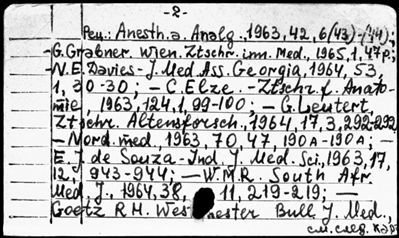 -2-
Рец.: Anesth. a. Analg., 1963, 42, 6 (43)-(44);
- G. Grabner. Wien. Ztschr. inn. Med., 1965, 1, 47p;
- N. E. Davies - J. Med. Ass. Georgia, 1964, 53,
1, 30-30; - C. Elze. - Ztschr. f. Anato-
mie, 1963, 124, 1, 99-100; - G. Leutert,
Ztschr. Altersforsch., 1964, 17, 3, 292-292
- Nord. med., 1963, 70, 47, 190A-190A; -
E. J. de Souza - Ind. J. Med. Sci., 1963, 17,
12, 943-944; - W. M. R. South Afr.
Med. J., 1964, 38, 11, 219-219; -
Goetz R. H. Wes ester Bull J. Med.,
см. след. кар